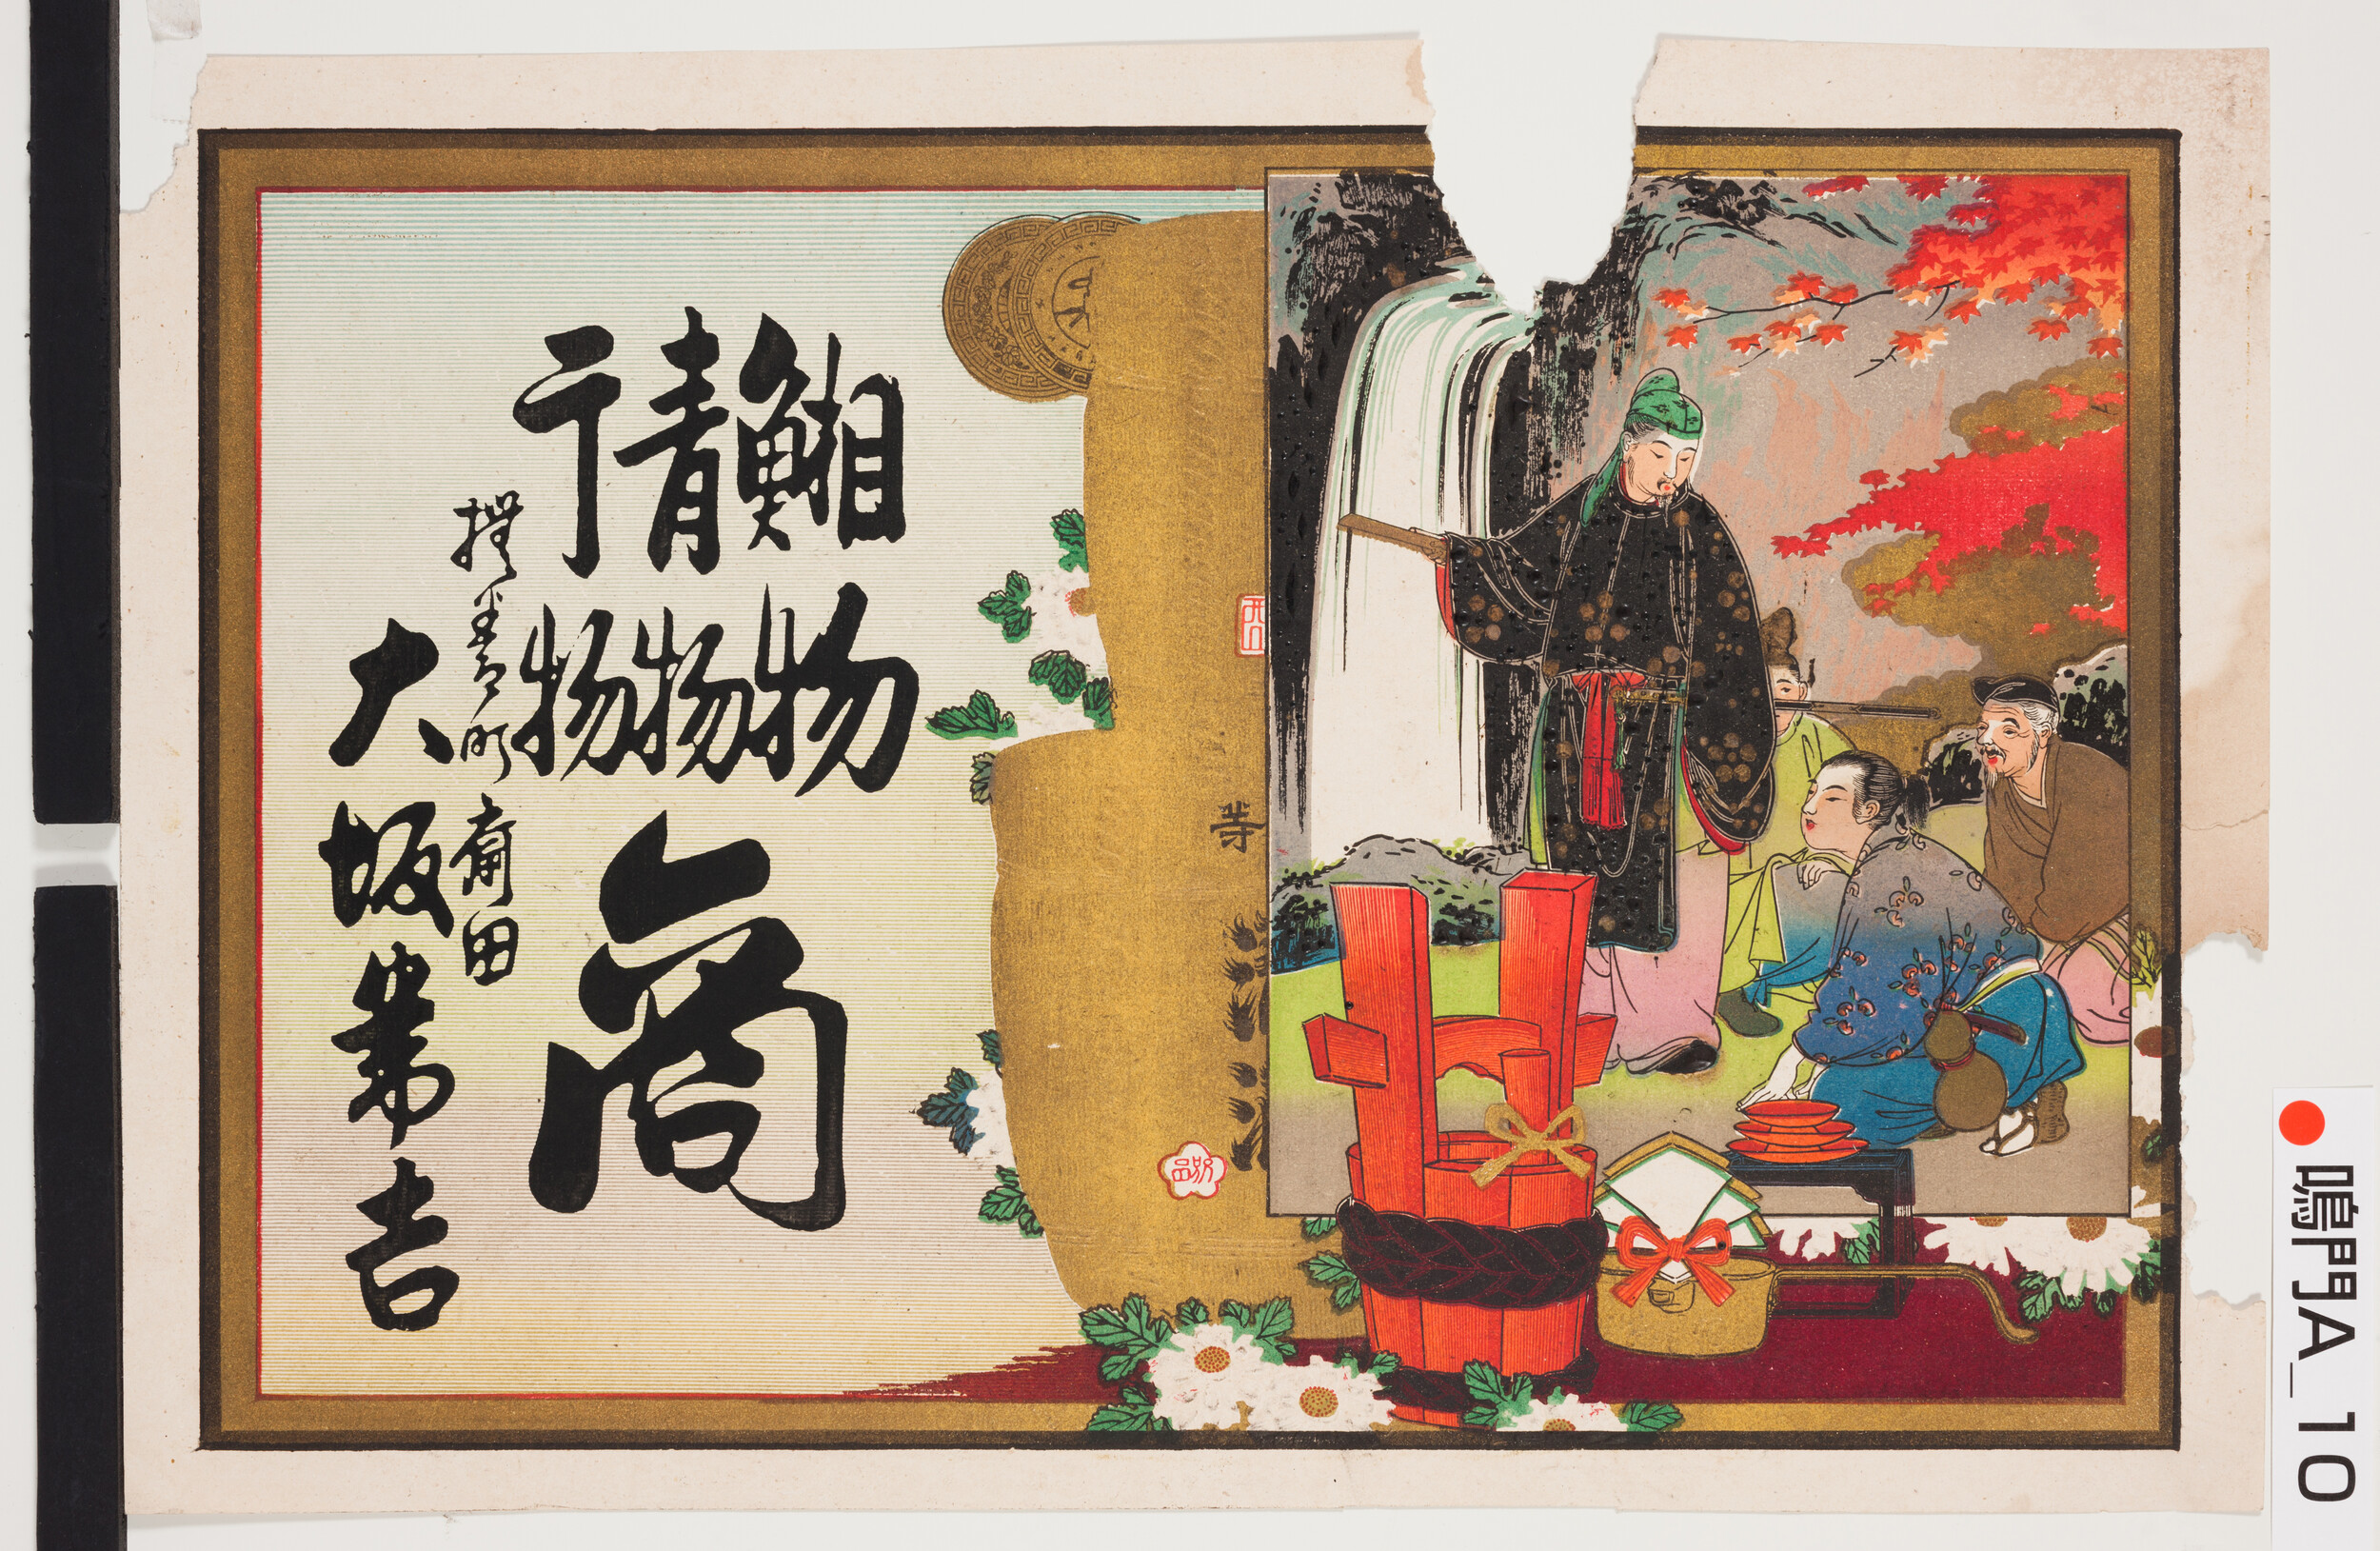 物
青物
干物
商
撫養町斎田
大坂常吉
鳴門A_10